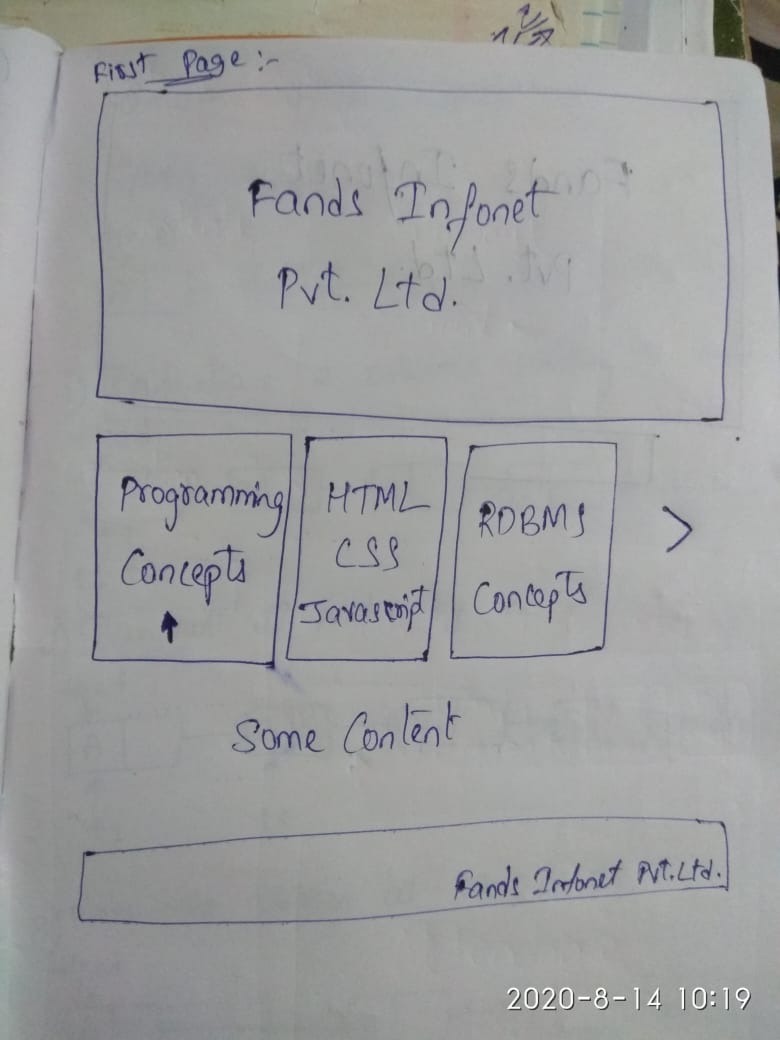 First Page :-
Fands Infonet
Pvt. Ltd.
Programming
Concepts
HTML
CSS
Javascript
RDBMS
Concepts
>
Some Content
Fands Infonet Pvt.Ltd.
2020-8-14 10:19